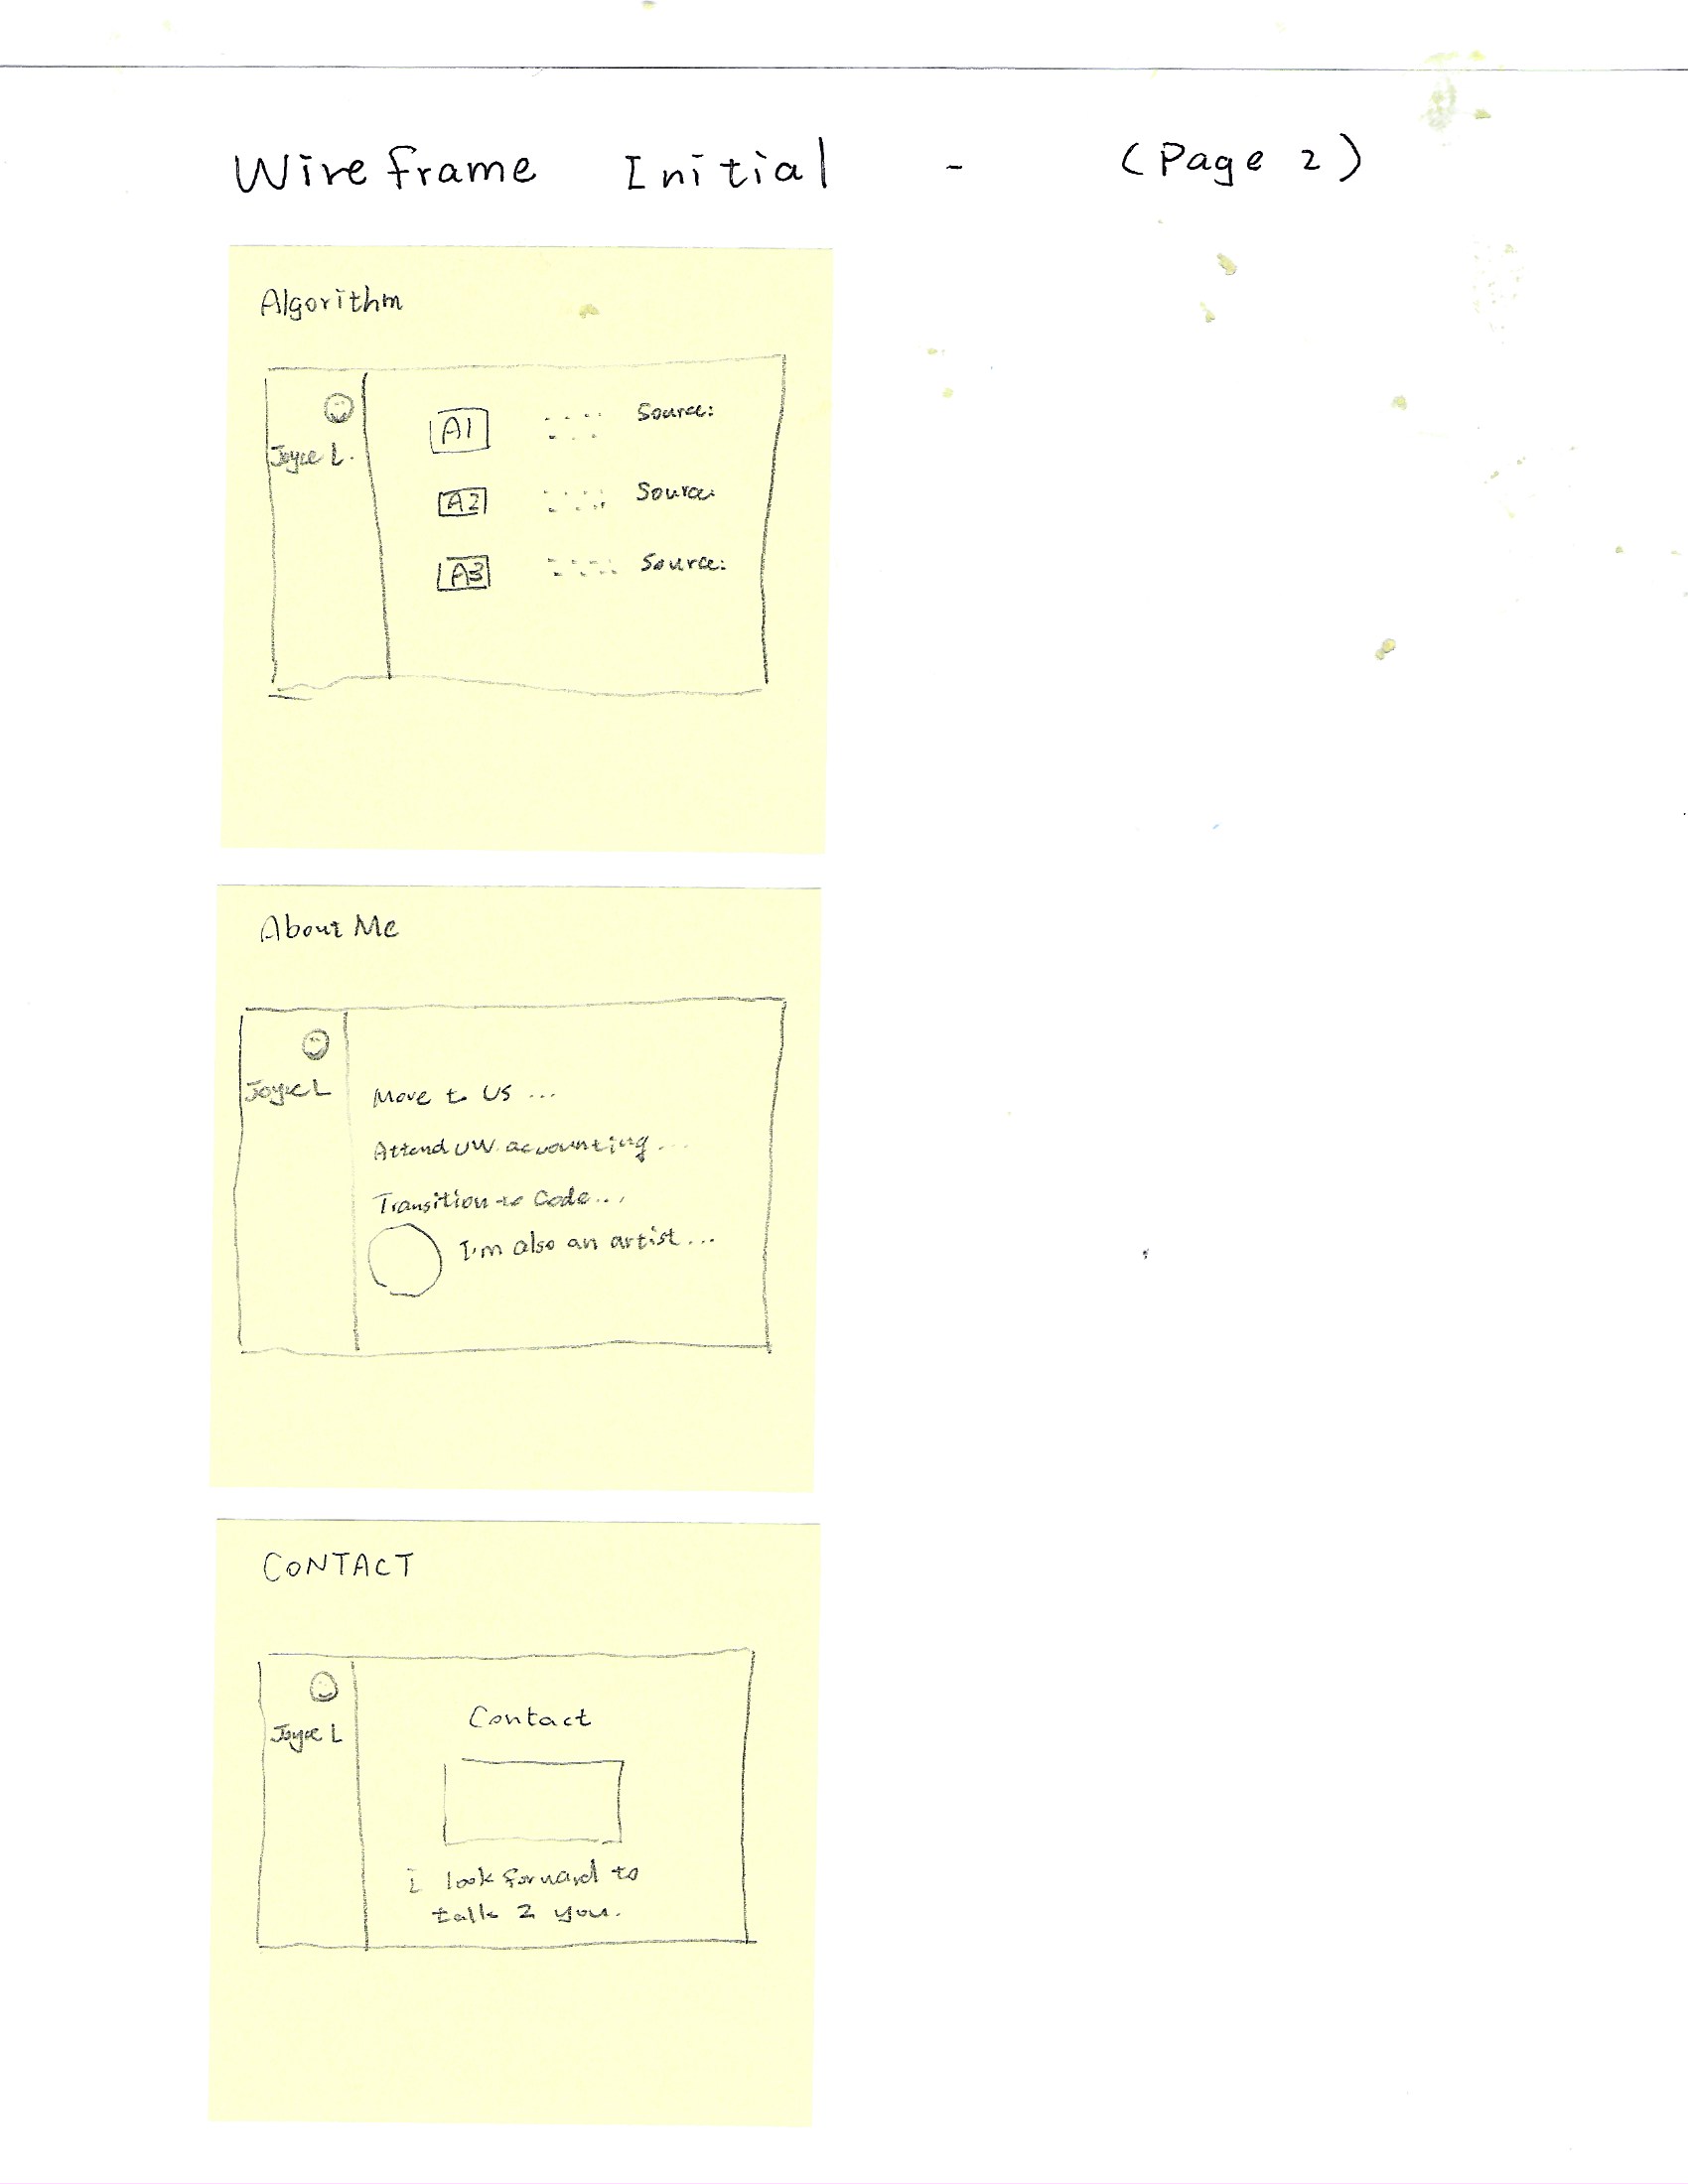 Wireframe Initial - (Page 2)
Algorithm
Joyce L.
A1 Source:
A2 Source:
A3 Source:
About Me
Joyce L
Move to US ...
Attend UW. accounting ...
Transition to Code...
I'm also an artist...
CONTACT
Joyce L
Contact
i look forward to
talk 2 you.